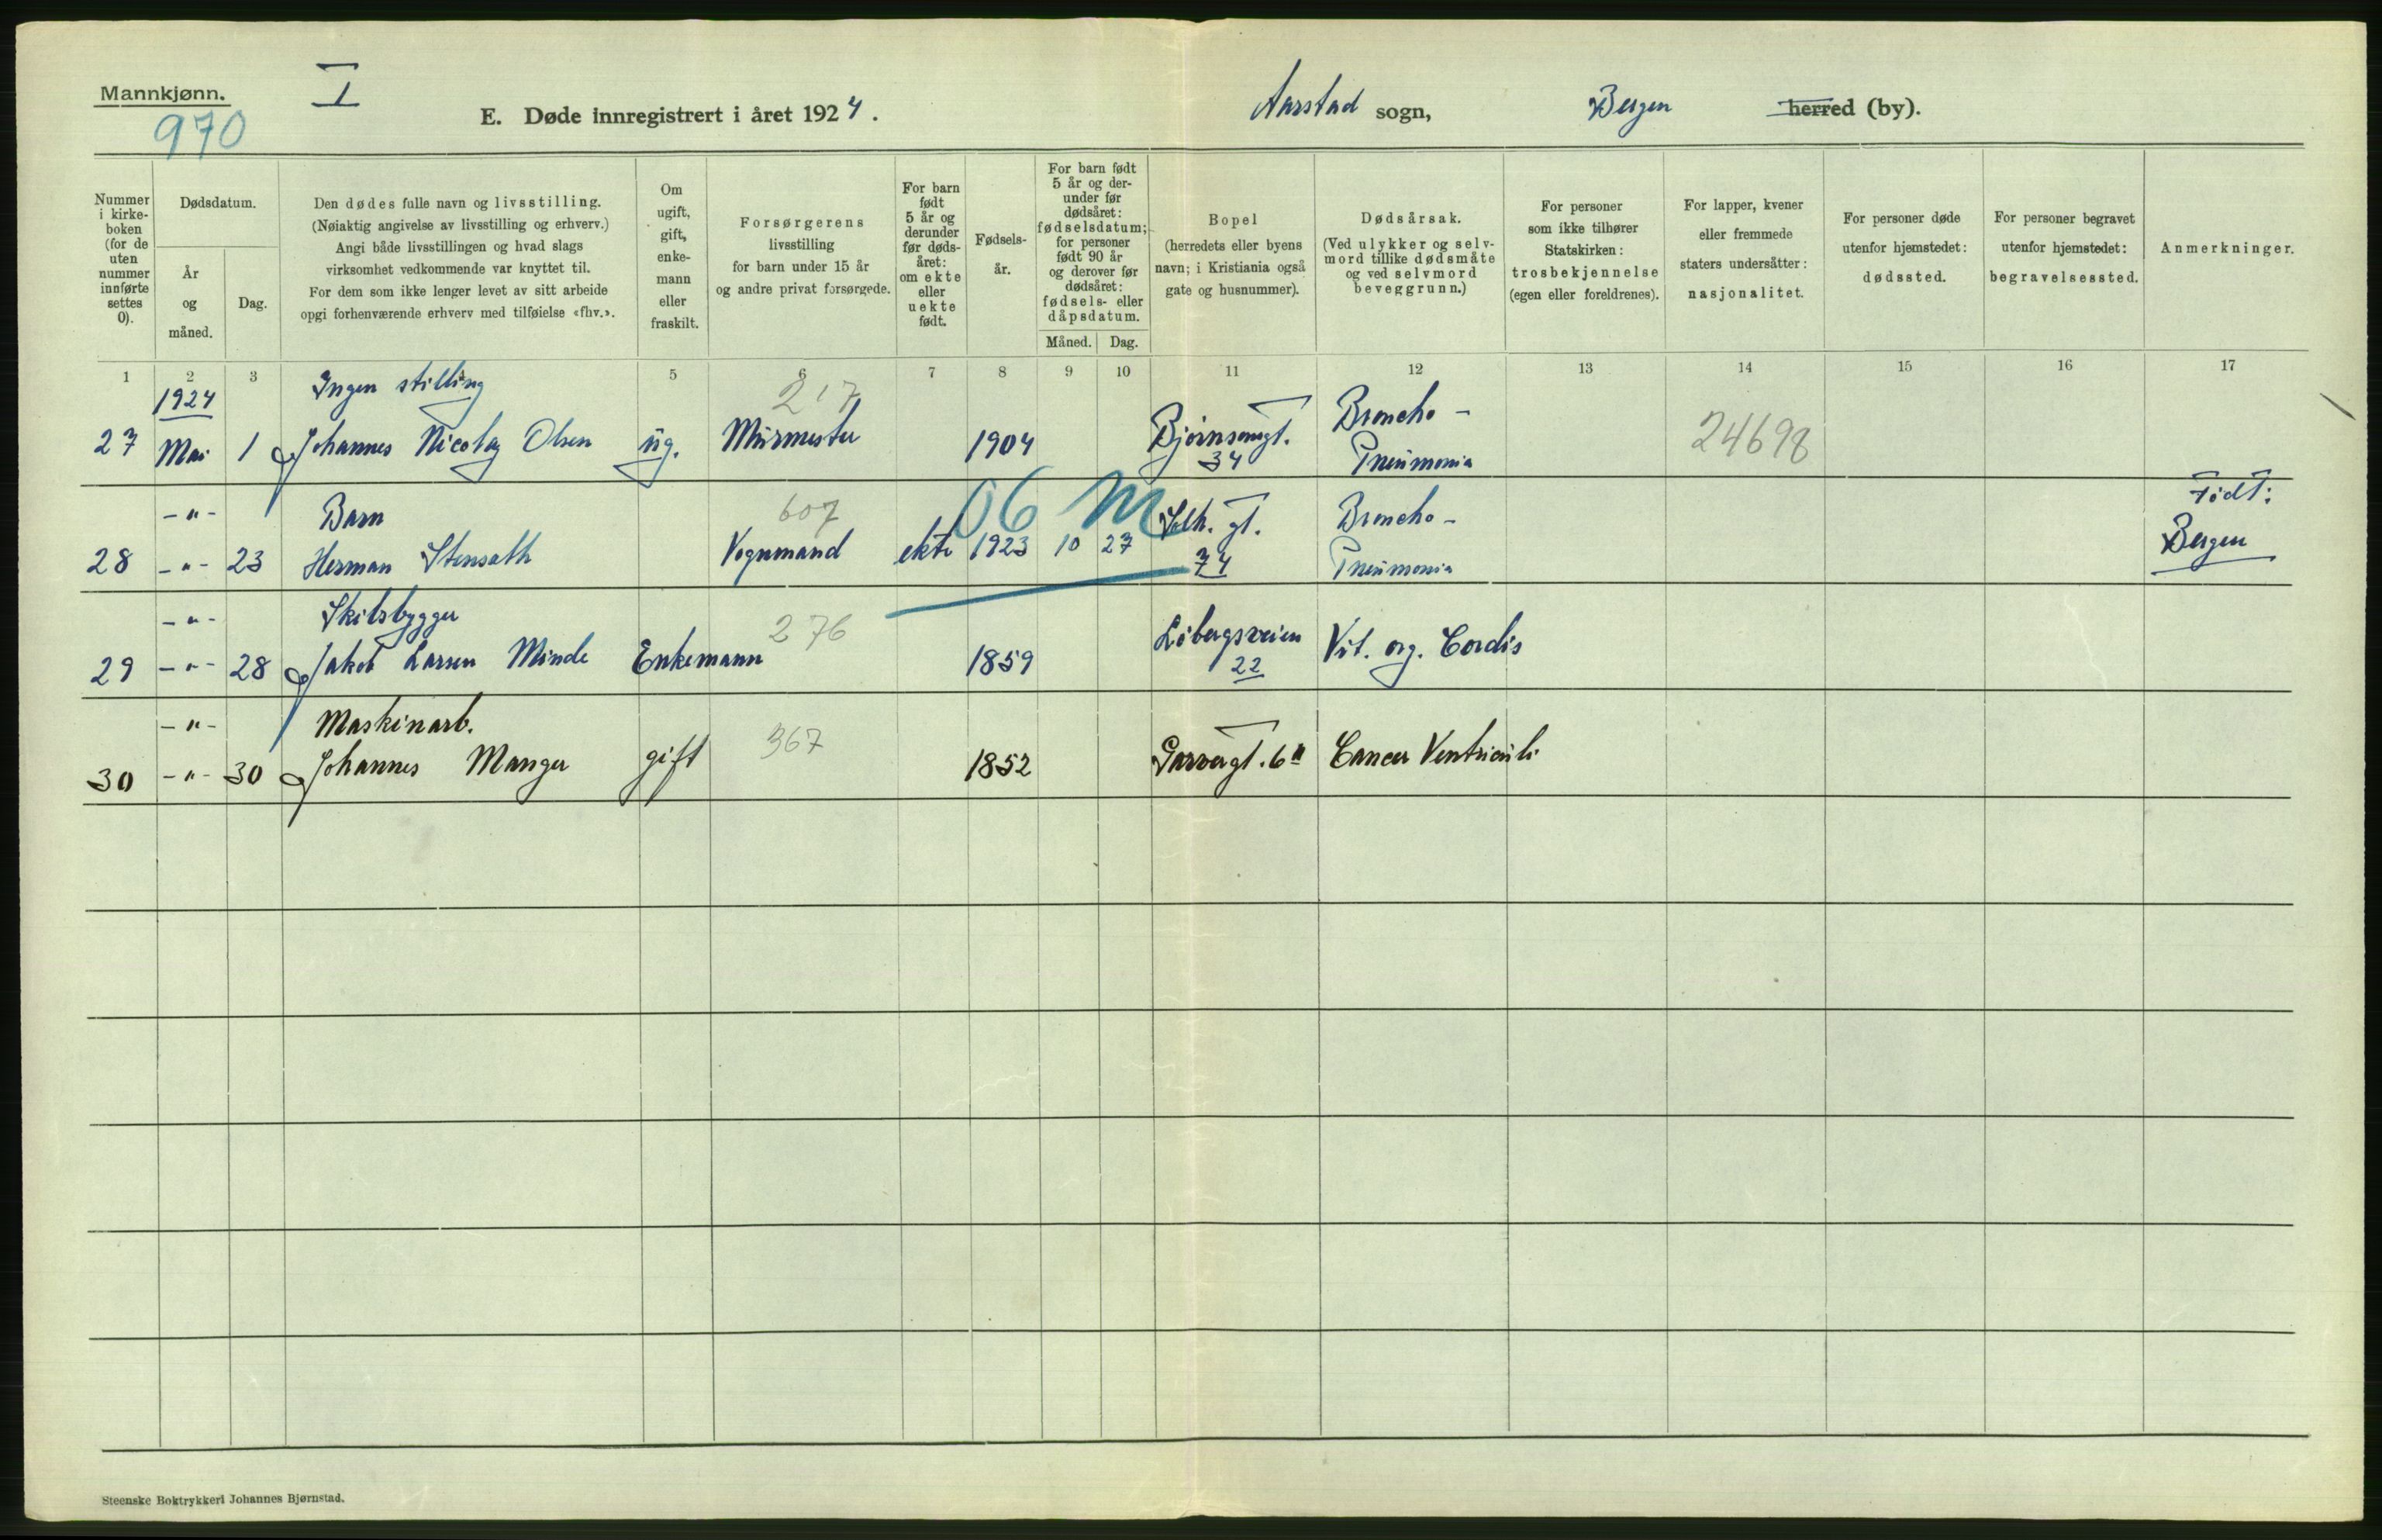 Mannkjønn.
I
970
E. Døde innregistrert i året 1924.
Aarstad sogn,
Bergen herred (by).
Nummer i kirke- boken (for de uten nummer innførte settes 0).
Dødsdatum.
År og måned.
Dag.
Den dødes fulle navn og livsstilling.
(Nøiaktig angivelse av livsstilling og erhverv.)
Angi både livsstillingen og hvad slags
virksomhet vedkommende var knyttet til.
For dem som ikke lenger levet av sitt arbeide
opgi forhenværende erhverv med tilføielse «fhv.».
Om ugift, gift, enke- mann eller fraskilt.
Forsørgerens
livsstilling
for barn under 15 år
og andre privat forsørgede.
For barn født 5 år og derunder før døds- året: om ekte eller uekte født.
Fødsels- år.
For barn født 5 år og der- under før dødsåret: fødselsdatum; for personer født 90 år og derover før dødsåret: fødsels- eller dåpsdatum.
Måned. Dag.
Bopel
(herredets eller byens
navn; i Kristiania også
gate og husnummer).
Dødsårsak.
(Ved ulykker og selv-
mord tillike dødsmåte
og ved selvmord
beveggrunn.)
For personer
som ikke tilhører
Statskirken:
trosbekjennelse
(egen eller foreldrenes).
For lapper, kvener
eller fremmede
staters undersåtter:
nasjonalitet.
For personer døde
utenfor hjemstedet:
dødssted.
For personer begravet
utenfor hjemstedet:
begravelsessted.
Anmerkninger.
1 2 3 4 5 6 7 8 9 10 11 12 13 14 15 16 17
1924 Ingen stilling 217 Broncho-
27 Mai 1 Johannes Nicolay Olsen ug. Murmester 1904 Bjørnsonsgt. 34 Pneumonia 24698
06 M
-"- Barn 607 Solh. gt. Broncho- Født:
28 -"- 23 Herman Stensath Vognmand ekte 1923 10 27 74 Pneumonia Bergen
-"- Skibsbygger 276 Løbergsveien
29 -"- 28 Jakob Larsen Minde Enkemann 1859 22 Vit. org. Cordis
-"- Maskinarb. 367
30 -"- 30 Johannes Manger gift 1852 Garvergt. 6 Cancer Ventriculi
Steenske Boktrykkeri Johannes Bjørnstad.